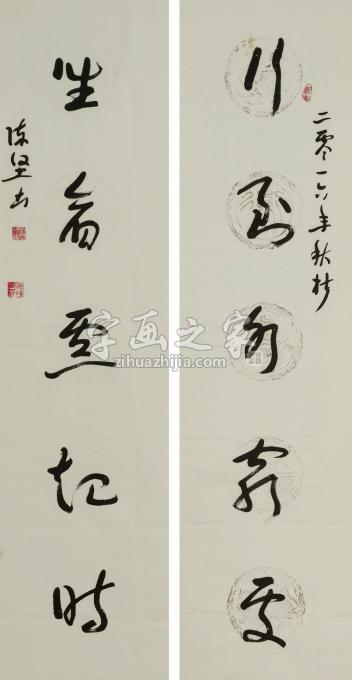 二零一六年秋村
行到水窮處
坐看雲起時
陈坚书
字画之家
zihuazhijia.com